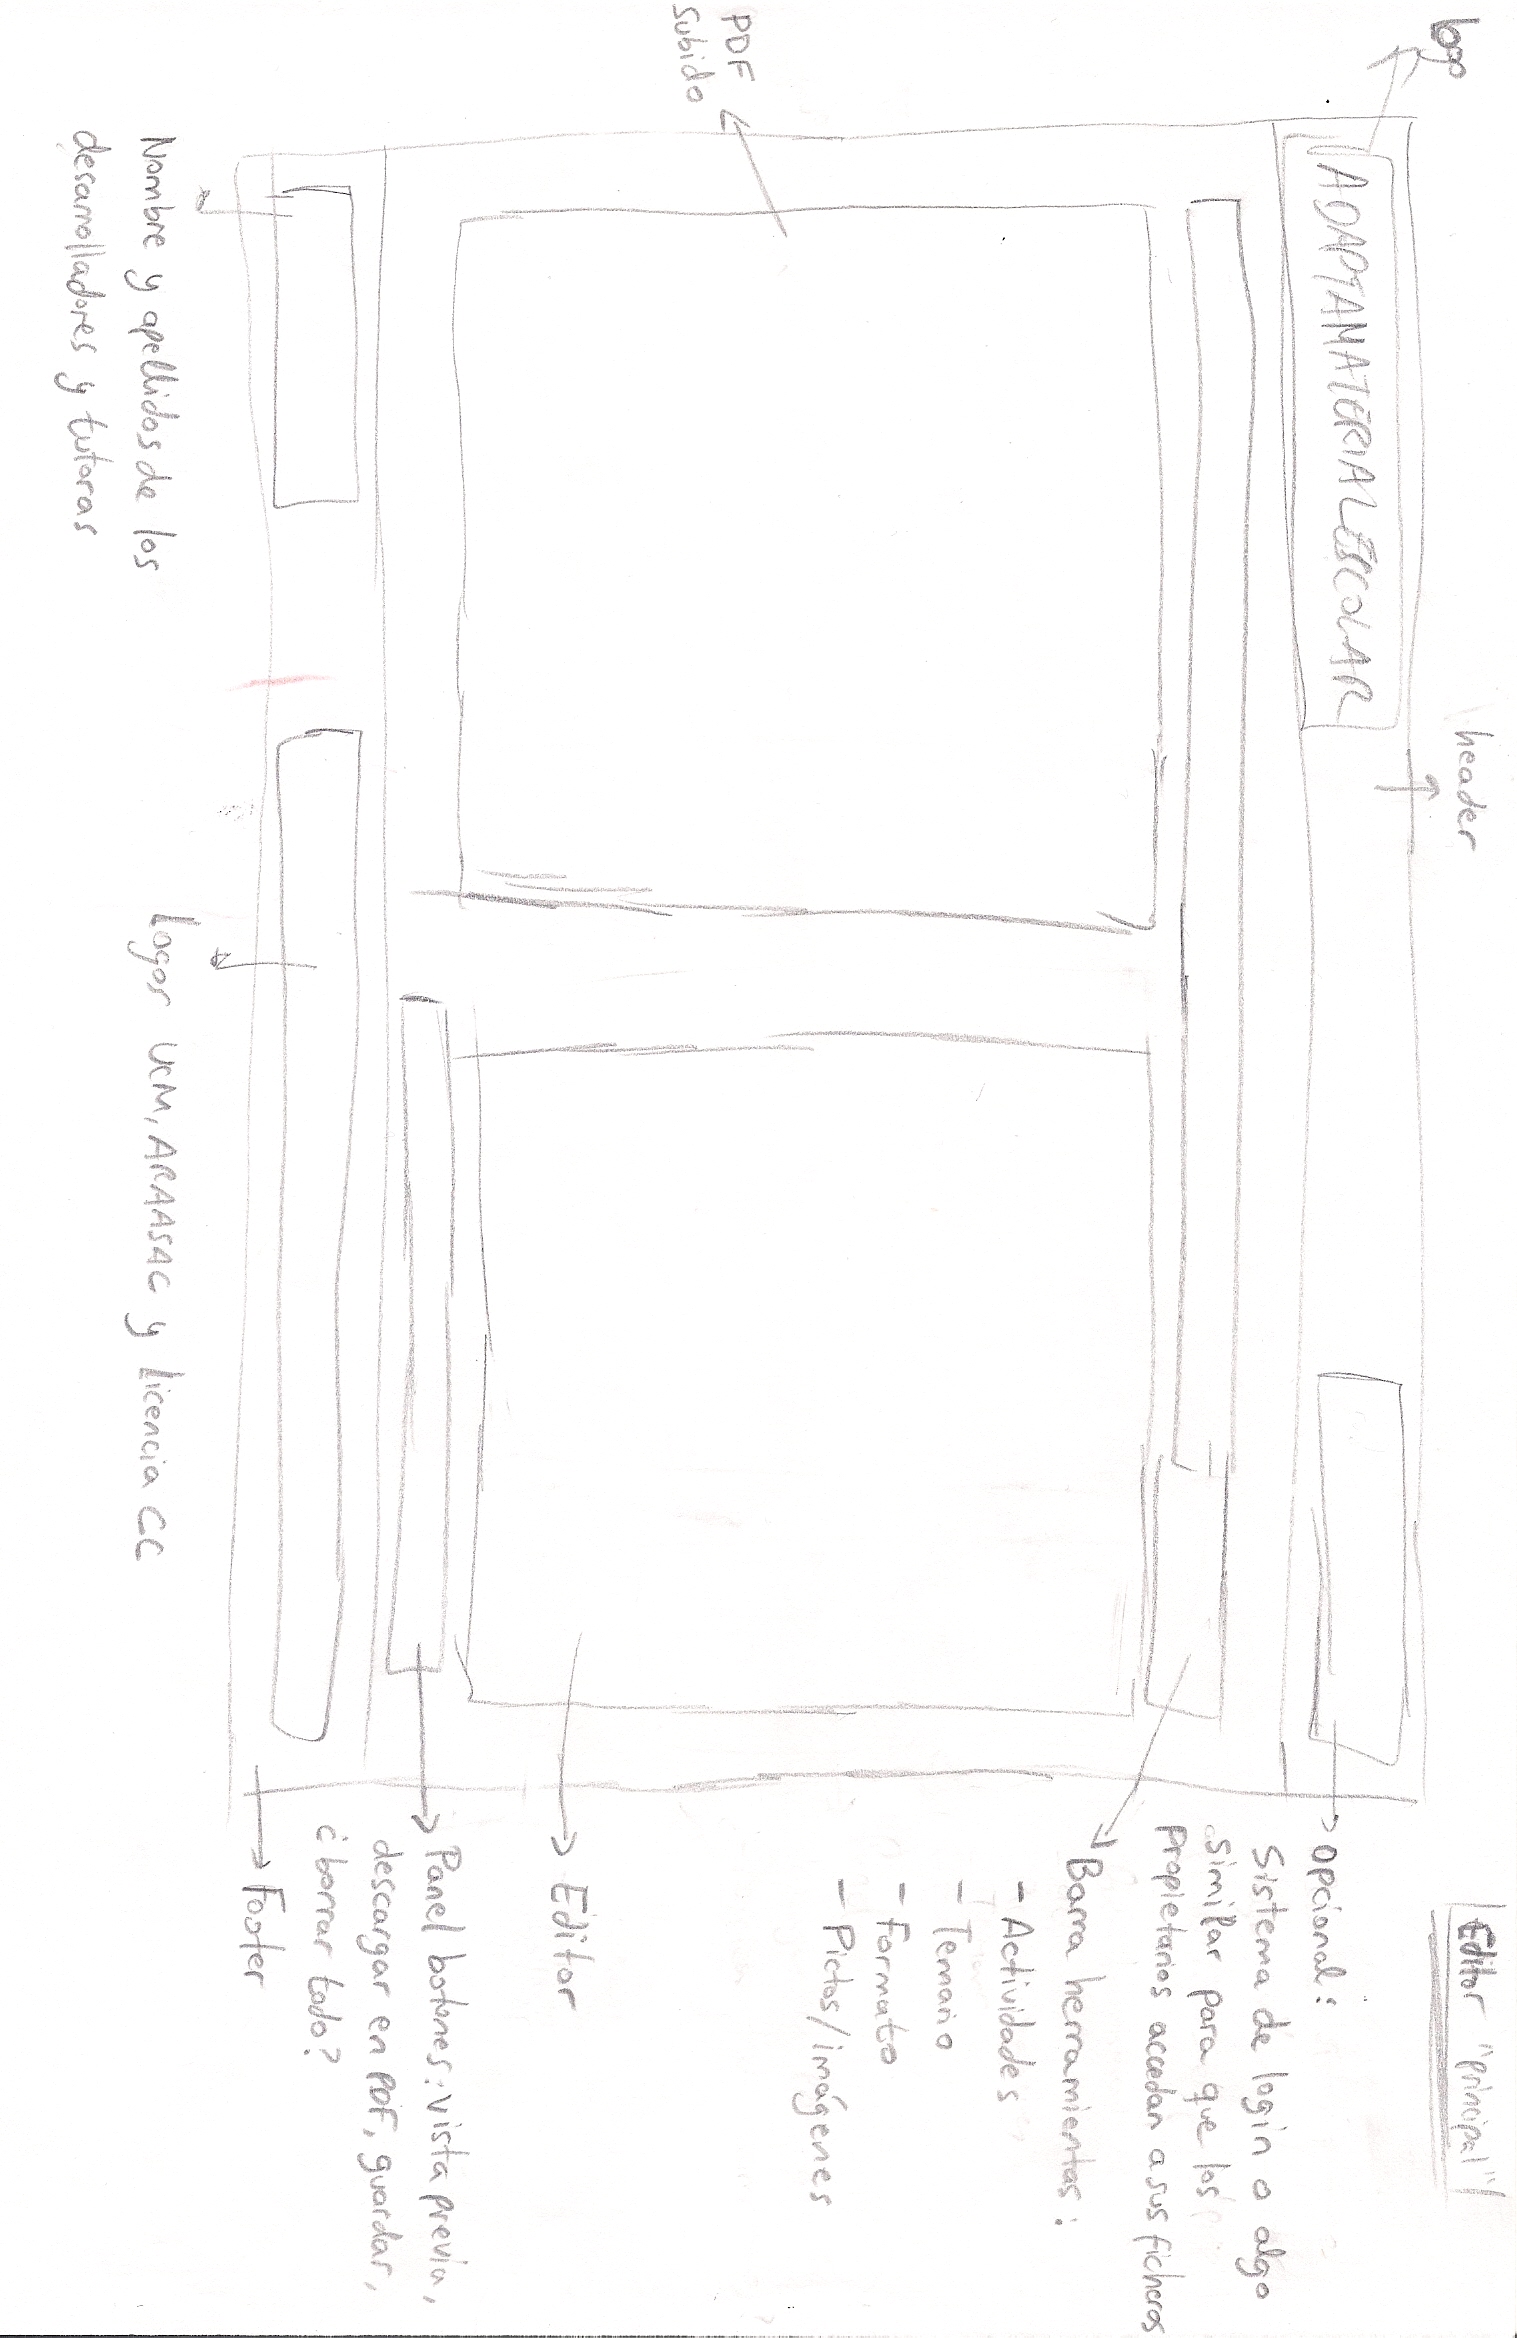 Editor "principal"
logo
header
ADAPTAMATERIALESCOLAR
Opcional:
Sistema de login o algo
similar para que los
propietarios accedan a sus ficheros
Barra herramientas:
- Actividades
- Temario
- Formato
- Pictos/imágenes
PDF
subido
Editor
Panel botones: vista previa,
descargar en PDF, guardar,
¿borrar todo?
Footer
Nombre y apellidos de los
desarrolladores y tutoras
Logos UCM, ARAASAC y Licencia CC